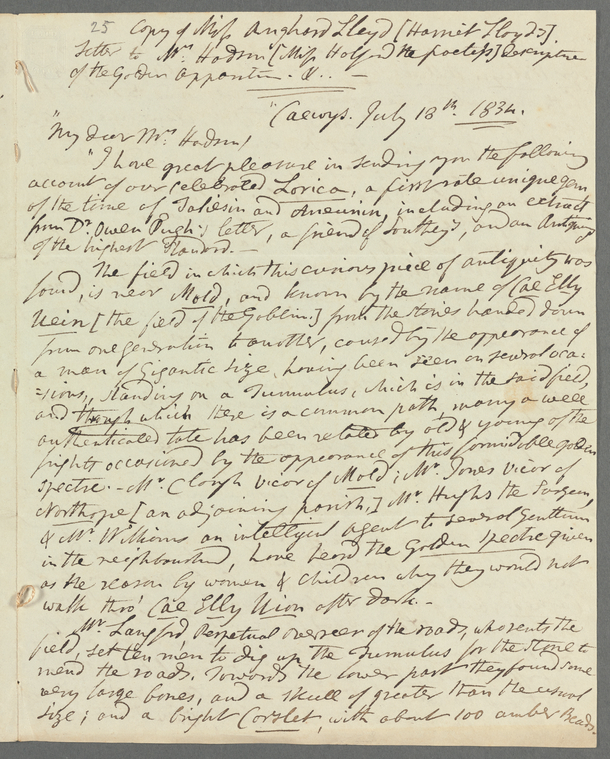 25 Copy of Miss Angharad Lloyd [Harriet Lloyd's].
Letter to Mrs. Hodson [Miss Holford the poetess] descriptive
of the Golden Apparition. &..—
"Caerwys. July 18th. 1834.
"My dear Mrs. Hodson,
"I have great pleasure in sending you the following
account of our celebrated Lorica, a first rate unique gem
of the time of Taliesin and Aneurin, including an extract
from Dr. Owen Pugh's letter, a friend of Southey's, and an Antiquary
of the highest Standard.—
The field in which this curious piece of antiquity was
found, is near Mold, and known by the name of Cae Elly
Uein [the field of the Goblin:] from the stories handed down
from one generation to another, caused by the appearance of
a man of gigantic size, having been seen on several occa=
=sions, standing on a Tumulus, which is in the said field,
and though which there is a common path, many a well
authenticated tale has been related by old & young of the
frights occasioned by the appearance of this formidable golden
Spectre.—Mr. Clough vicar of Mold; Mr. Jones vicar of
Northope [an adjoining parish,] Mr. Hughs the Surgeon,
& Mr. Williams an intelligent agent to several Gentlemen
in the neighbourhood, have heard the Golden Spectre given
as the reason by women & children why they would not
walk thro' Cae Elly Uion after dark.—
Mr. Langford, Perpetual overseer of the roads, who rents the
field, set ten men to dig up the Tumulus for the Stone to
mend the roads. Towards the lower part they found some
very large bones, and a skull of greater than the usual
size; and a bright Corslet, with about 100 amber Beads.